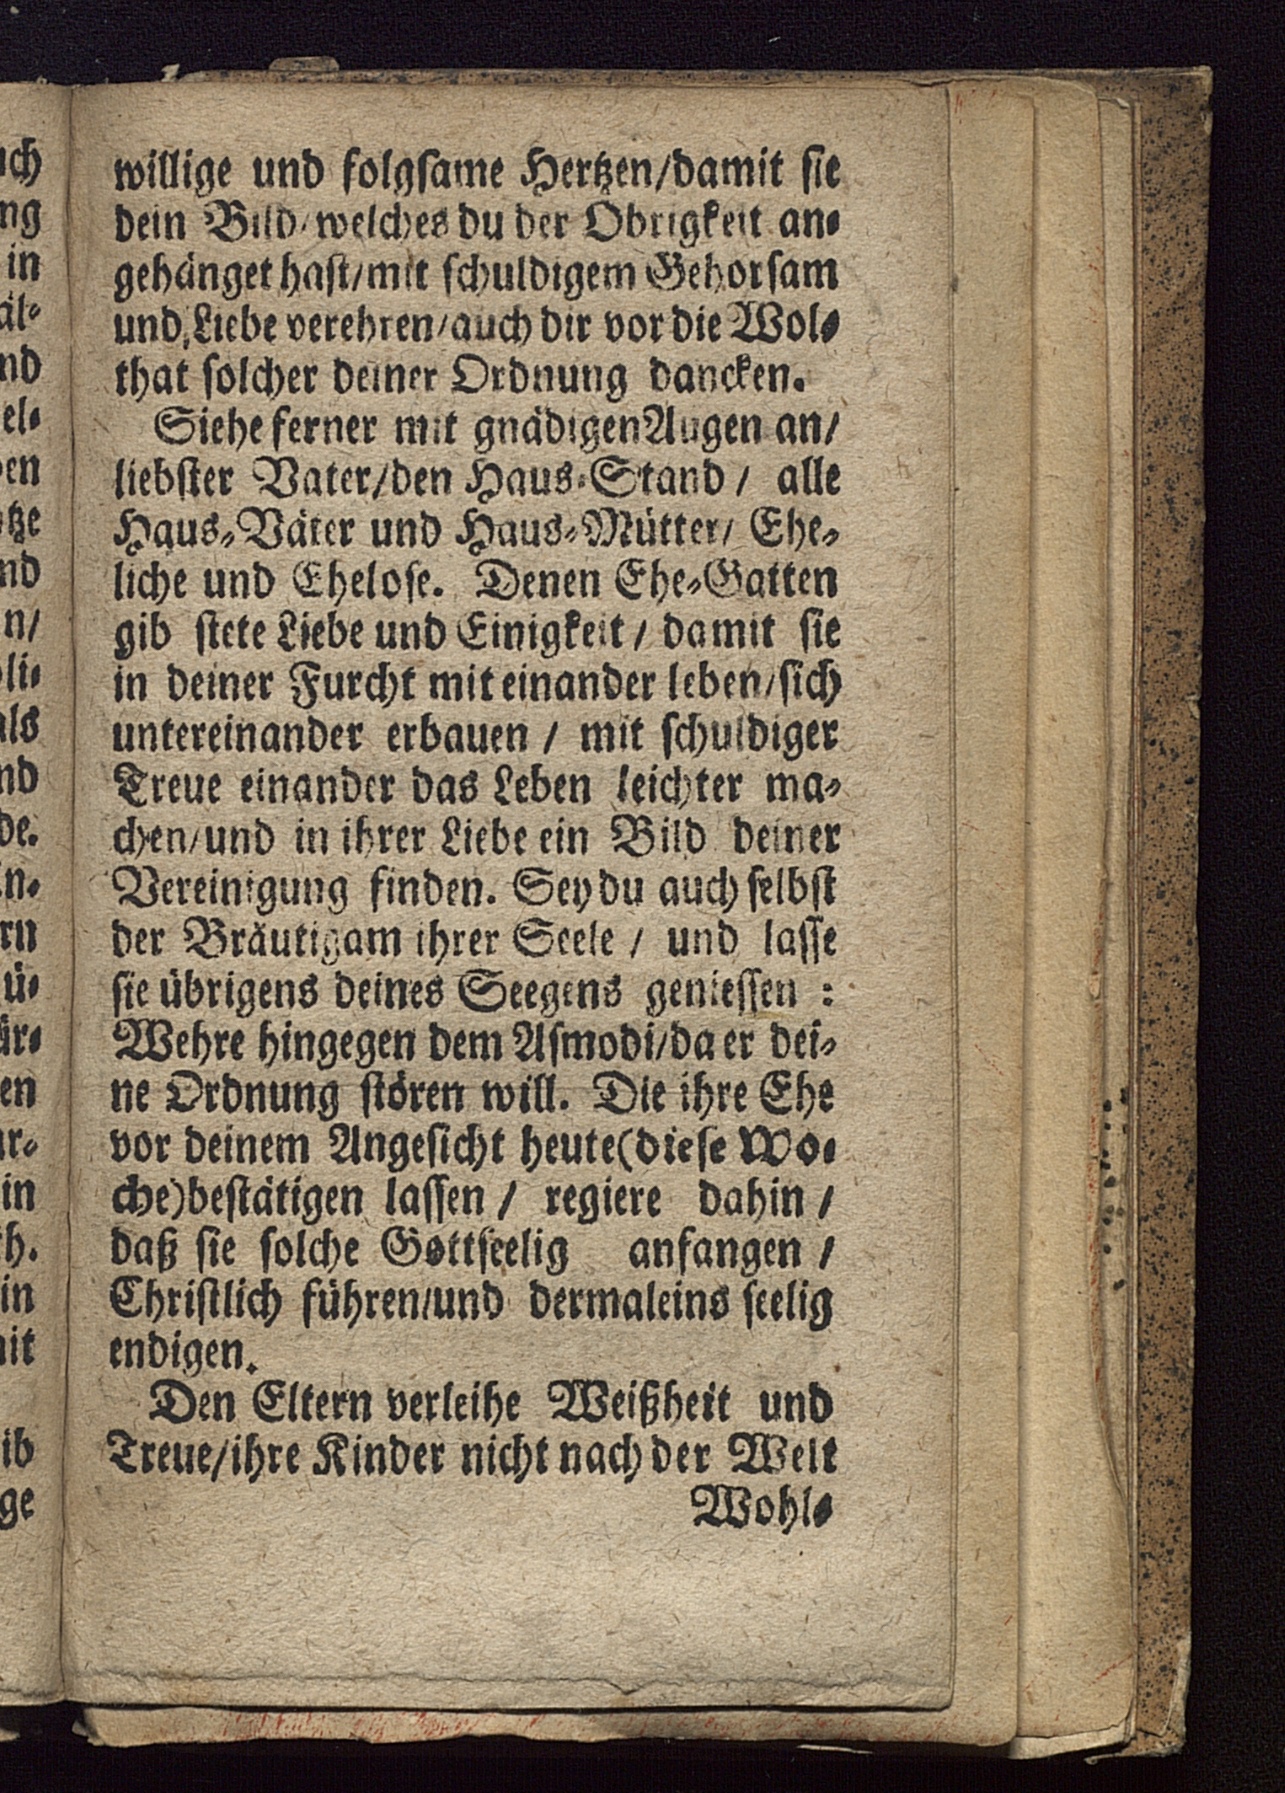 willige und folgsame Hertzen/damit sie
dein Bild/welches du der Obrigkeit an-
gehänget hast/mit schuldigem Gehorsam
und Liebe verehren/auch dir vor die Wol-
that solcher deiner Ordnung dancken.
Siehe ferner mit gnädigen Augen an/
liebster Vater/den Haus-Stand / alle
Haus-Väter und Haus-Mütter/ Ehe-
liche und Ehelose. Denen Ehe-Gatten
gib stete Liebe und Einigkeit / damit sie
in deiner Furcht mit einander leben/sich
untereinander erbauen / mit schuldiger
Treue einander das Leben leichter ma-
chen/und in ihrer Liebe ein Bild deiner
Vereinigung finden. Sey du auch selbst
der Bräutigam ihrer Seele / und lasse
sie übrigens deines Seegens geniessen :
Wehre hingegen dem Asmodi/da er dei-
ne Ordnung stören will. Die ihre Ehe
vor deinem Angesicht heute(diese Wo-
che)bestätigen lassen / regiere dahin /
daß sie solche Gottseelig anfangen /
Christlich führen/und dermaleins seelig
endigen.
Den Eltern verleihe Weißheit und
Treue/ihre Kinder nicht nach der Welt
Wohl-